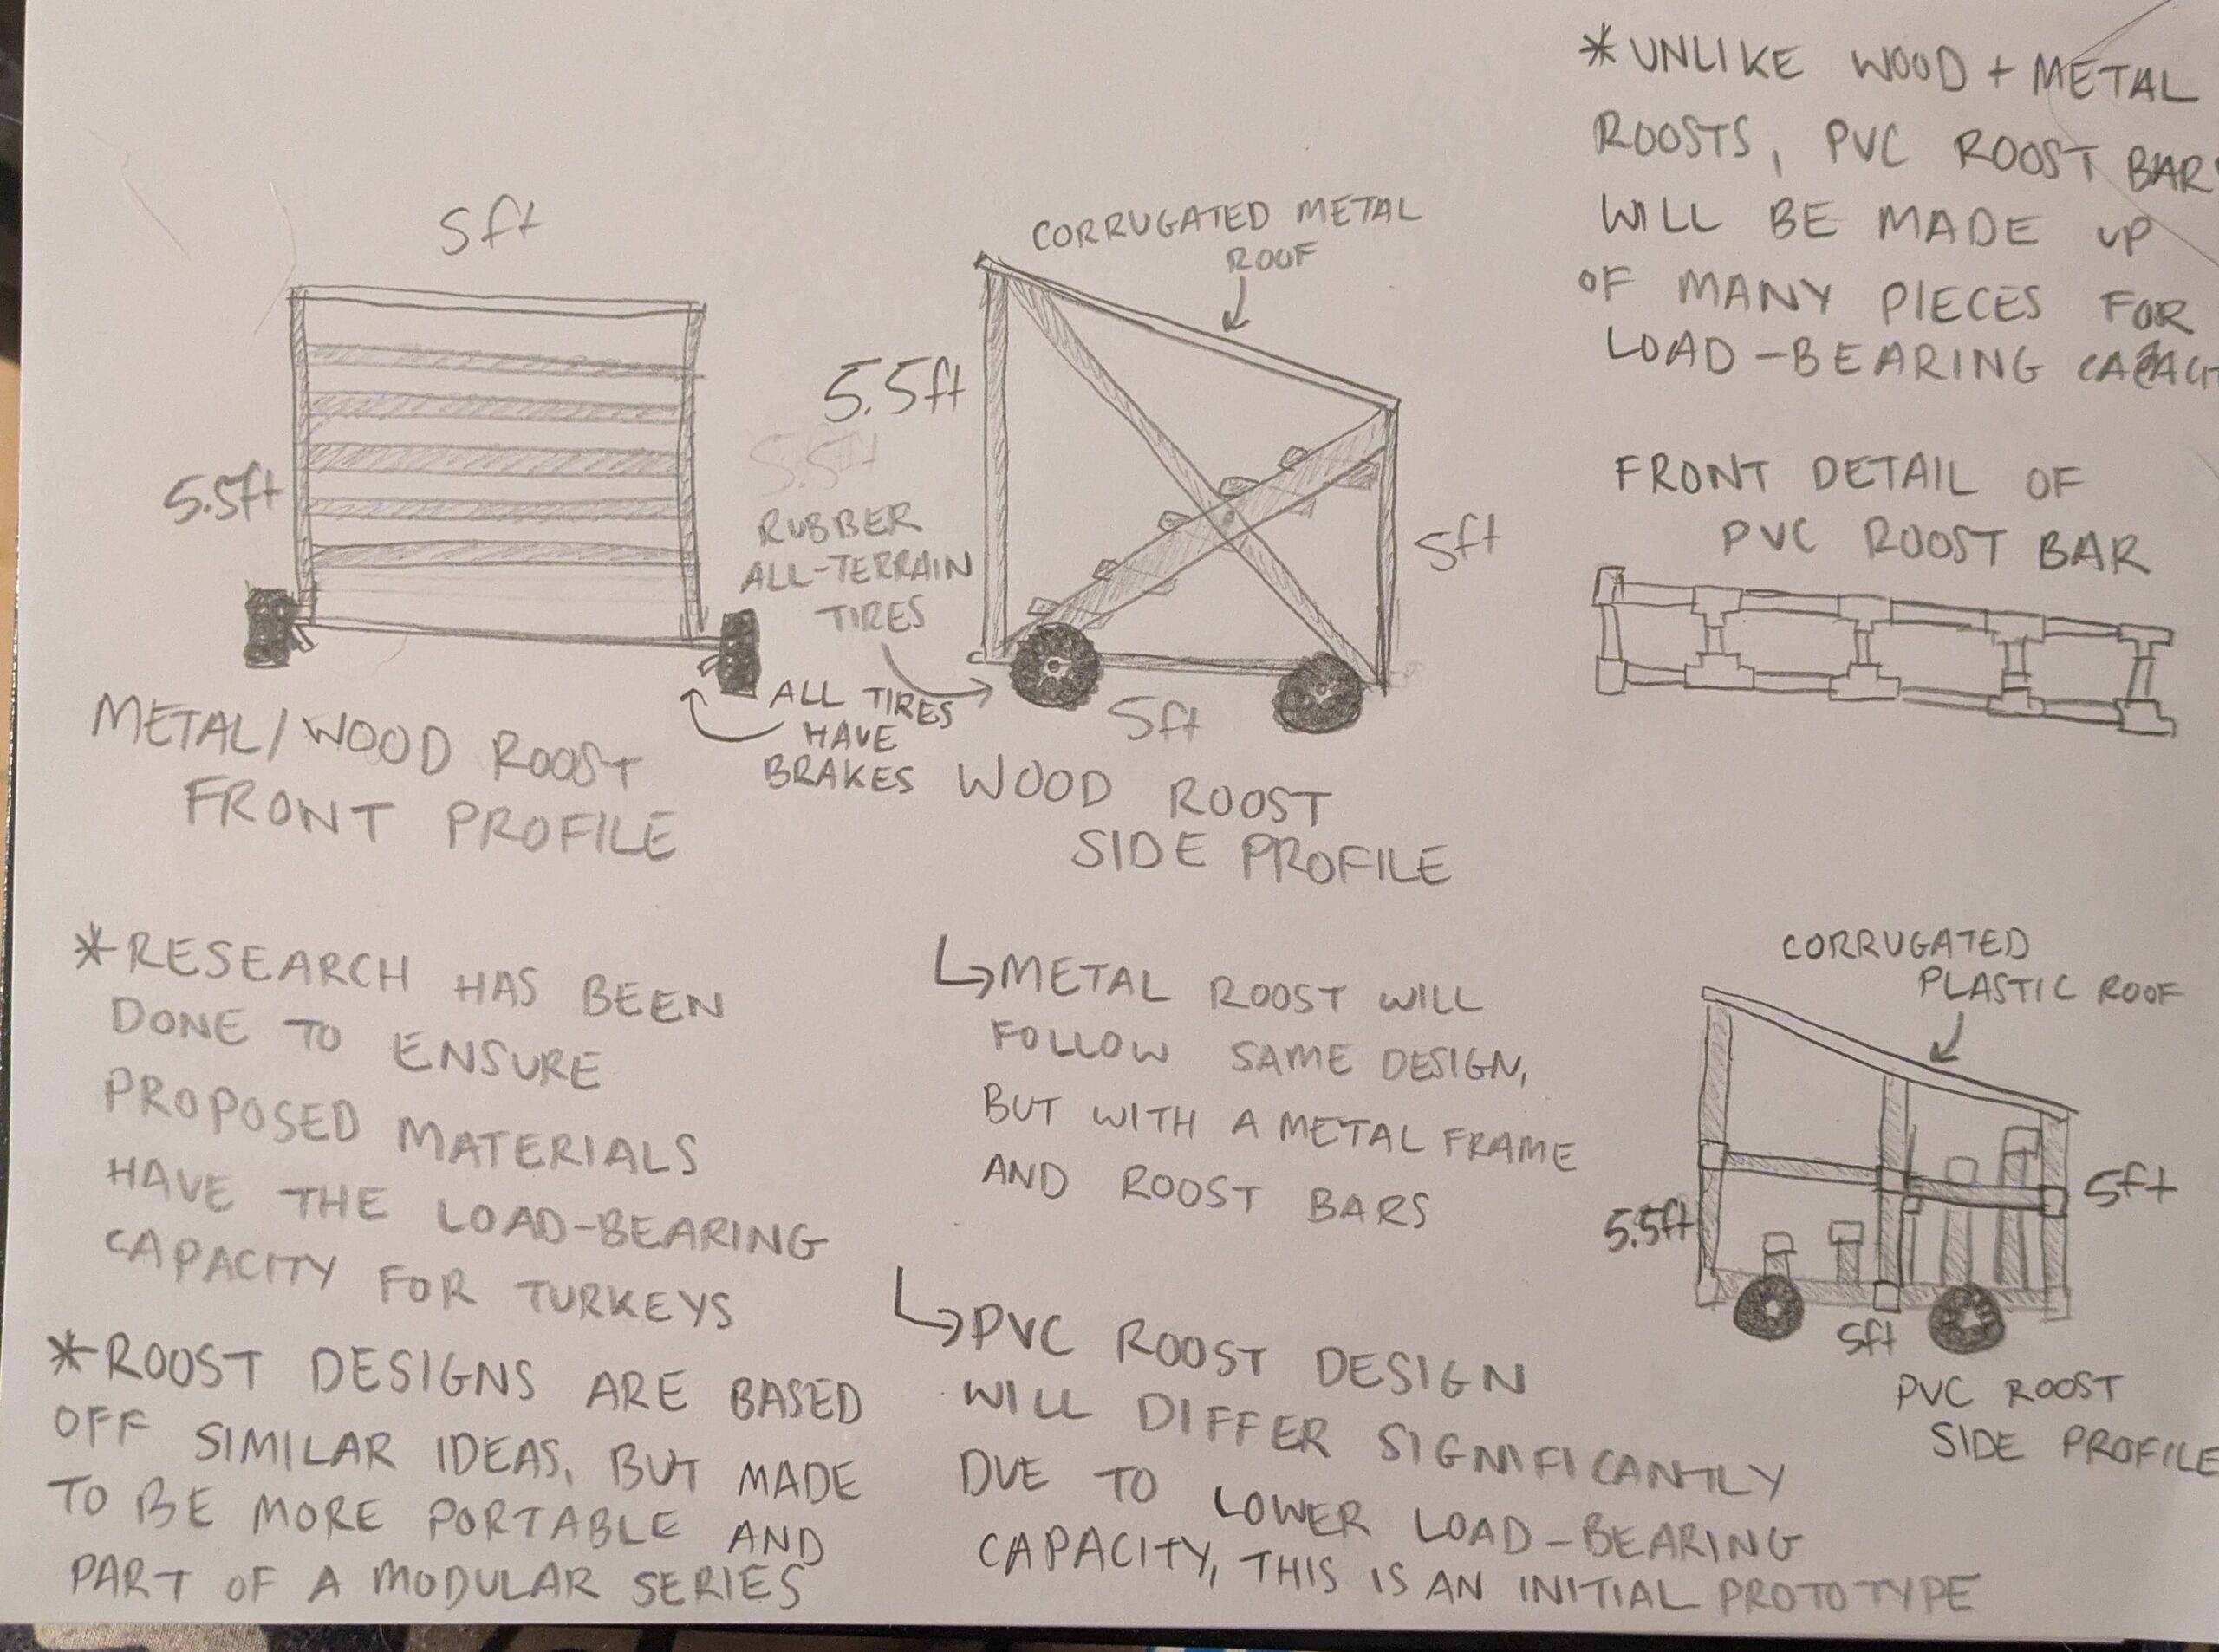 5ft
5.5ft
METAL/WOOD ROOST
FRONT PROFILE
CORRUGATED METAL
ROOF
5.5ft
5.5ft
RUBBER
ALL-TERRAIN
TIRES
5ft
5ft
ALL TIRES
HAVE
BRAKES
WOOD ROOST
SIDE PROFILE
*UNLIKE WOOD + METAL
ROOSTS, PVC ROOST BAR
WILL BE MADE UP
OF MANY PIECES FOR
LOAD-BEARING
FRONT DETAIL OF
PVC ROOST BAR
*RESEARCH HAS BEEN
DONE TO ENSURE
PROPOSED MATERIALS
HAVE THE LOAD-BEARING
CAPACITY FOR TURKEYS
*ROOST DESIGNS ARE BASED
OFF SIMILAR IDEAS, BUT MADE
TO BE MORE PORTABLE AND
PART OF A MODULAR SERIES
↳METAL ROOST WILL
FOLLOW SAME DESIGN,
BUT WITH A METAL FRAME
AND ROOST BARS
↳PVC ROOST DESIGN
WILL DIFFER SIGNIFICANTLY
DUE TO LOWER LOAD-BEARING
CAPACITY, THIS IS AN INITIAL PROTOTYPE
CORRUGATED
PLASTIC ROOF
5.5ft
5ft
5ft
PVC ROOST
SIDE PROFILE